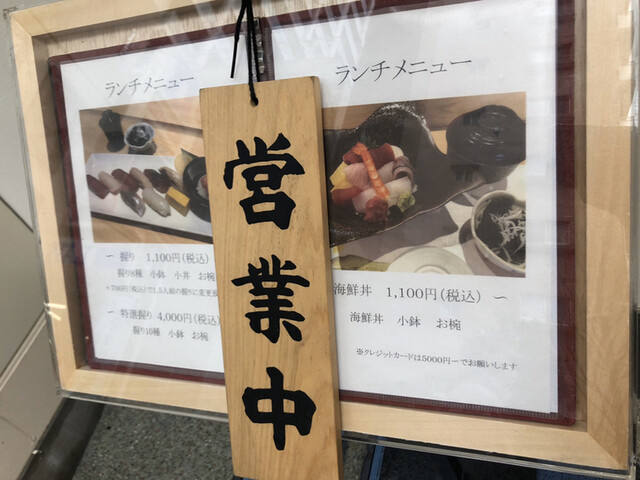 ランチメニュー
ー 握り 1,100円(税込)
握り8種 小鉢 小丼 お椀
ー 特選握り 4,000円(税込)
握り10種 小鉢 お椀
営業中
ランチメニュー
海鮮丼 1,100円(税込) ～
海鮮丼 小鉢 お椀
※クレジットカードは5000円～でお願いします